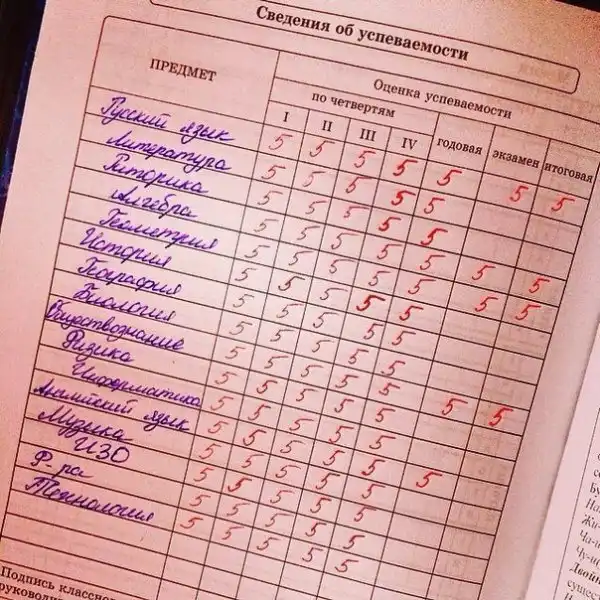 Сведения об успеваемости
ПРЕДМЕТ
Оценка успеваемости
по четвертям
годовая экзамен итоговая
I II III IV
Русский язык 5 5 5 5 5 5 5
Литература 5 5 5 5 5
Риторика 5 5 5 5 5
Алгебра 5 5 5 5 5 5 5
Геометрия 5 5 5 5 5 5 5
История 5 5 5 5 5
География 5 5 5 5 5
Биология 5 5 5 5 5
Обществознание 5 5 5 5 5
Физика 5 5 5 5 5 5
Информатика 5 5 5 5 5
Английский язык 5 5 5 5 5
Музыка 5 5 5 5 5
ИЗО 5 5 5 5 5
Ф-ра 5 5 5 5 5
Технология 5 5 5 5 5
Подпись